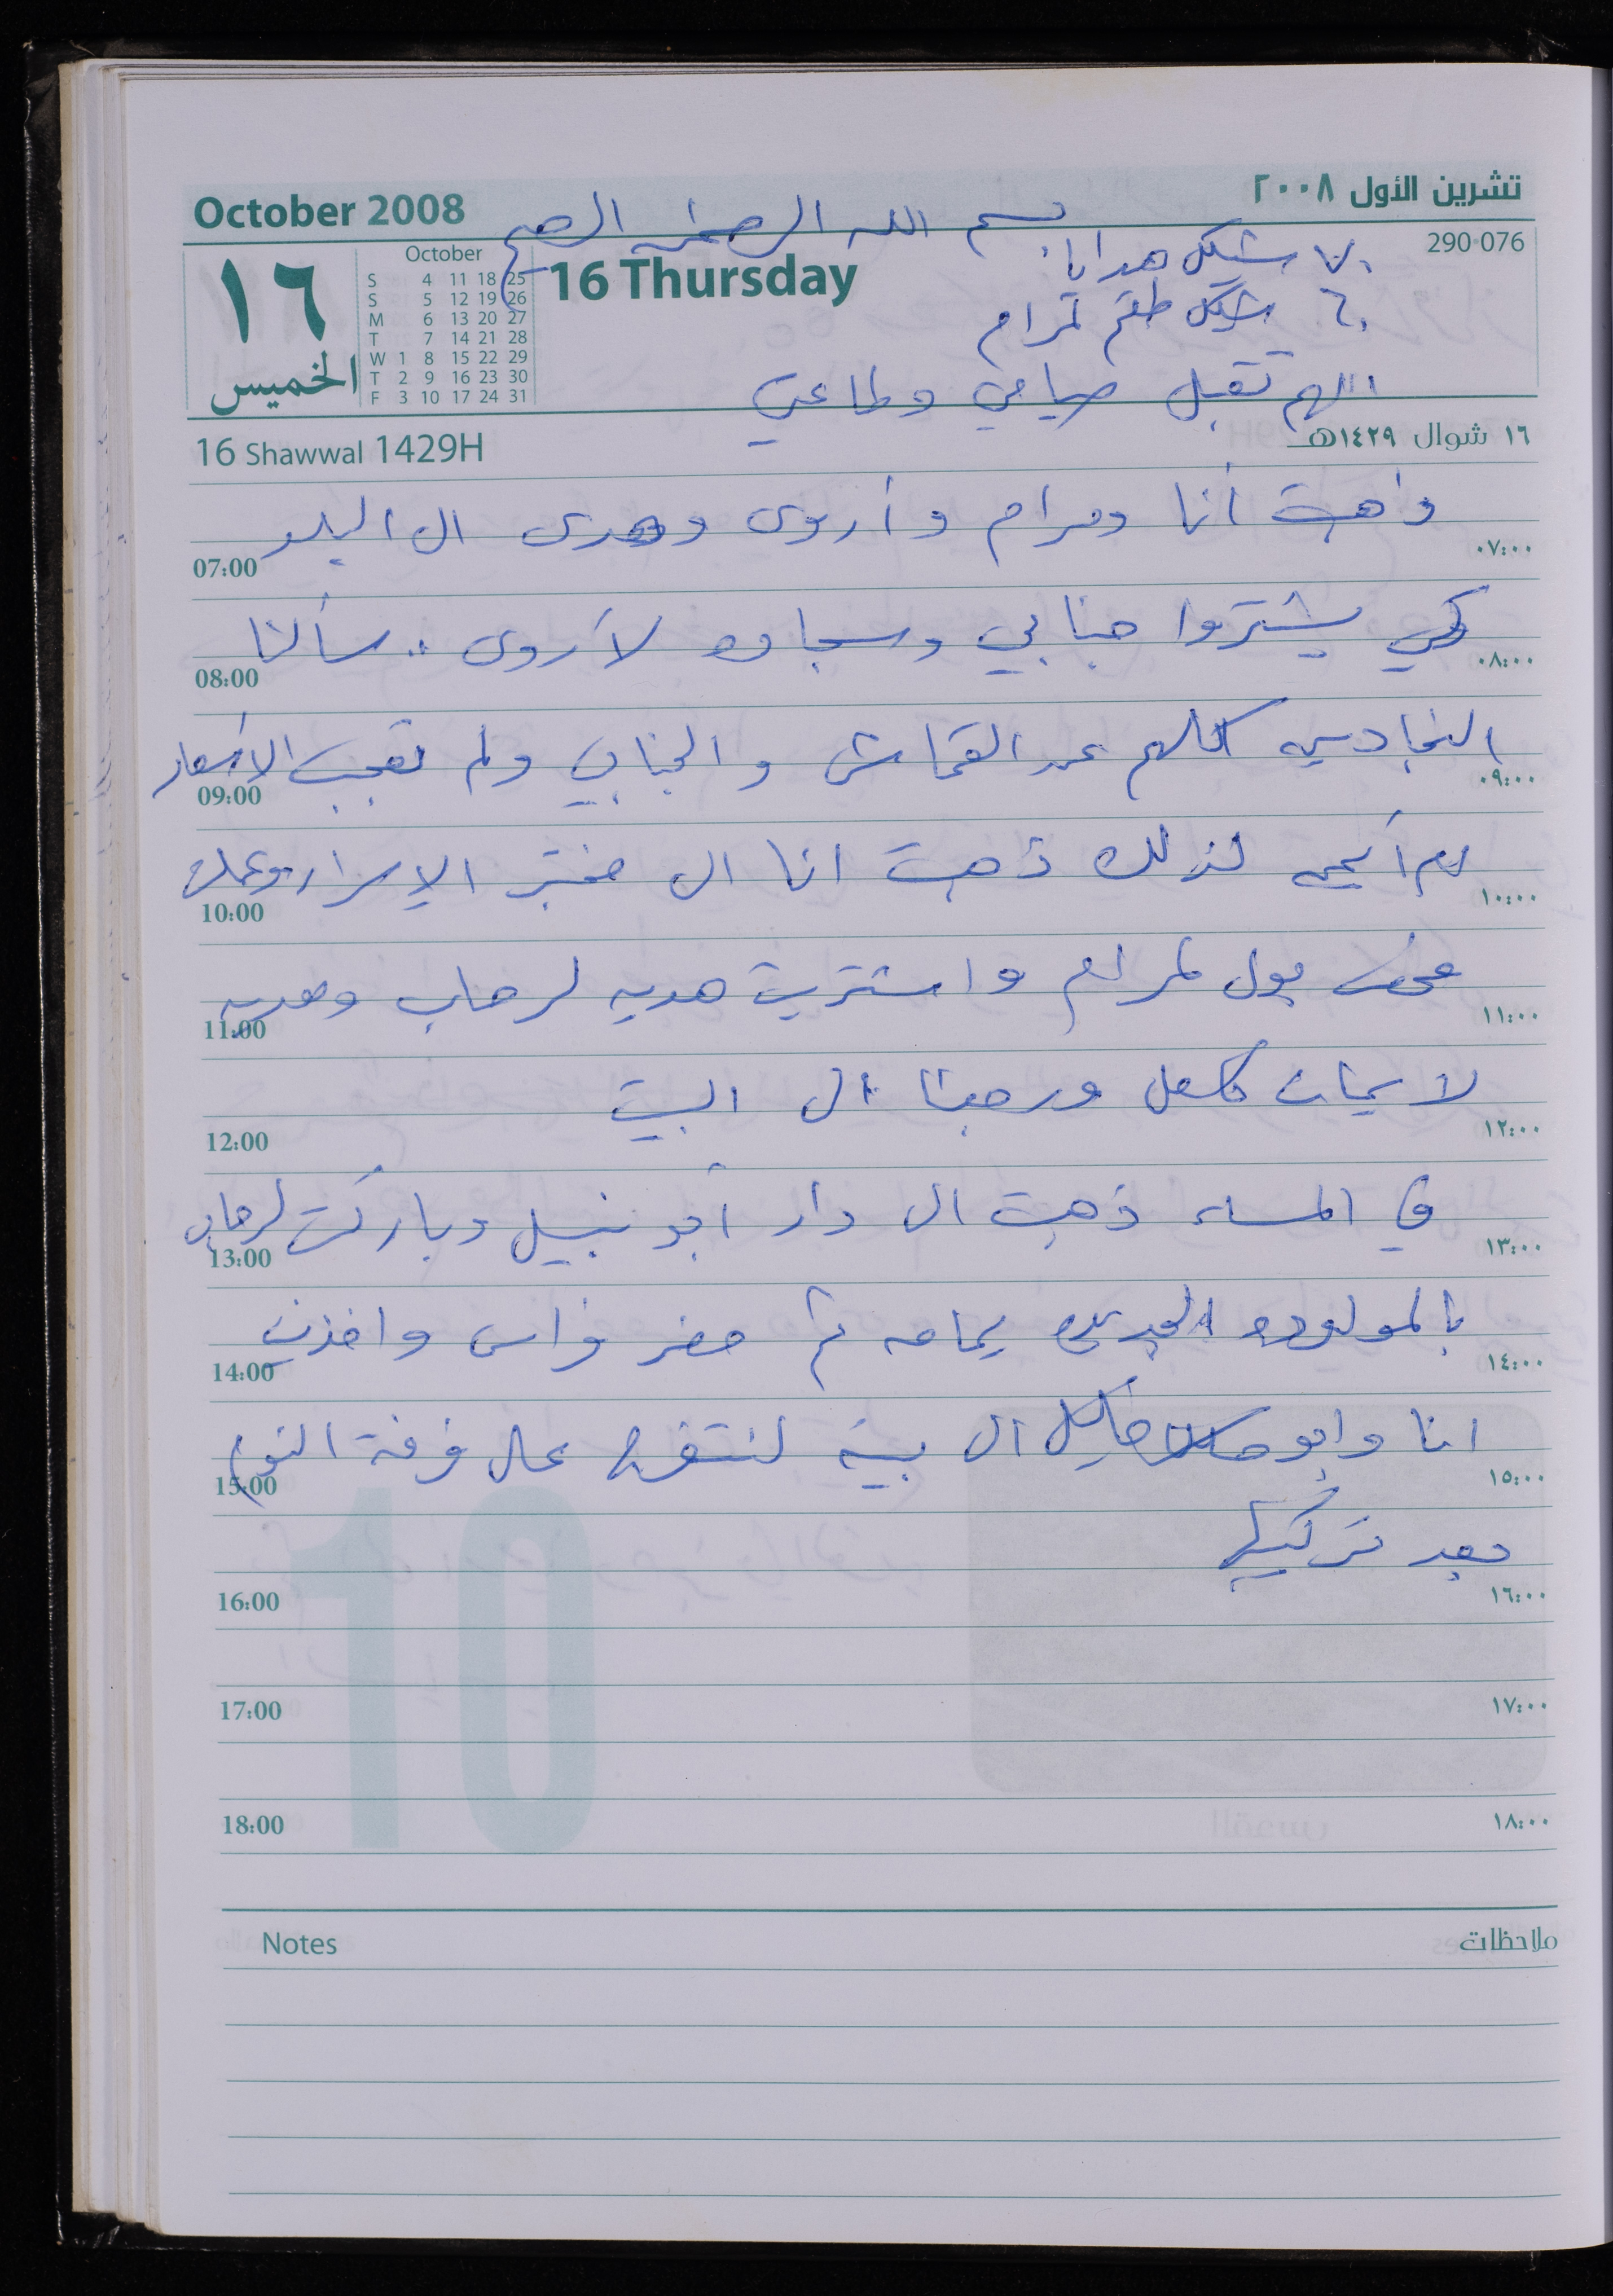 October 2008
تشرين الأول ٢٠٠٨
بسم الله الرحمن الرحيم
290·076
٧٠ شيكل هدايا
٦٠ شيكل طقم لمرام
اللهم تقبل صيامي وطاعتي
١٦
الخميس
October
S 4 11 18 25
S 5 12 19 26
M 6 13 20 27
T 7 14 21 28
W 1 8 15 22 29
T 2 9 16 23 30
F 3 10 17 24 31
16 Thursday
16 Shawwal 1429H
١٦ شوال ١٤٢٩هـ
ذهبت أنا ومرام وأروى وهدى الى البلد
07:00 ٠٧:٠٠
كي يشتروا جنابي وسجاده لأروى .. سألنا
08:00 ٠٨:٠٠
النجادين كلهم عن القماش والجنابي ولم تعجب الاسعار
09:00 ٠٩:٠٠
لذلك ذهبت انا الى مختبر الإسراء وعملت
10:00 ١٠:٠٠
فحص بول لمرام واشتريت هديه لرحاب وهديه
11:00 ١١:٠٠
لايمان ورجعنا الى البيت
12:00 ١٢:٠٠
في المساء ذهبت الى دار أبو نبيل وباركت لرحاب
13:00 ١٣:٠٠
بالمولوده الجديده يمامه ثم حضر فراس واخذني
14:00 ١٤:٠٠
انا وابو الى بيته لنتفرج على غرفة النوم
15:00 ١٥:٠٠
بعد تركيبها
16:00 ١٦:٠٠
17:00 ١٧:٠٠
18:00 ١٨:٠٠
Notes ملاحظات